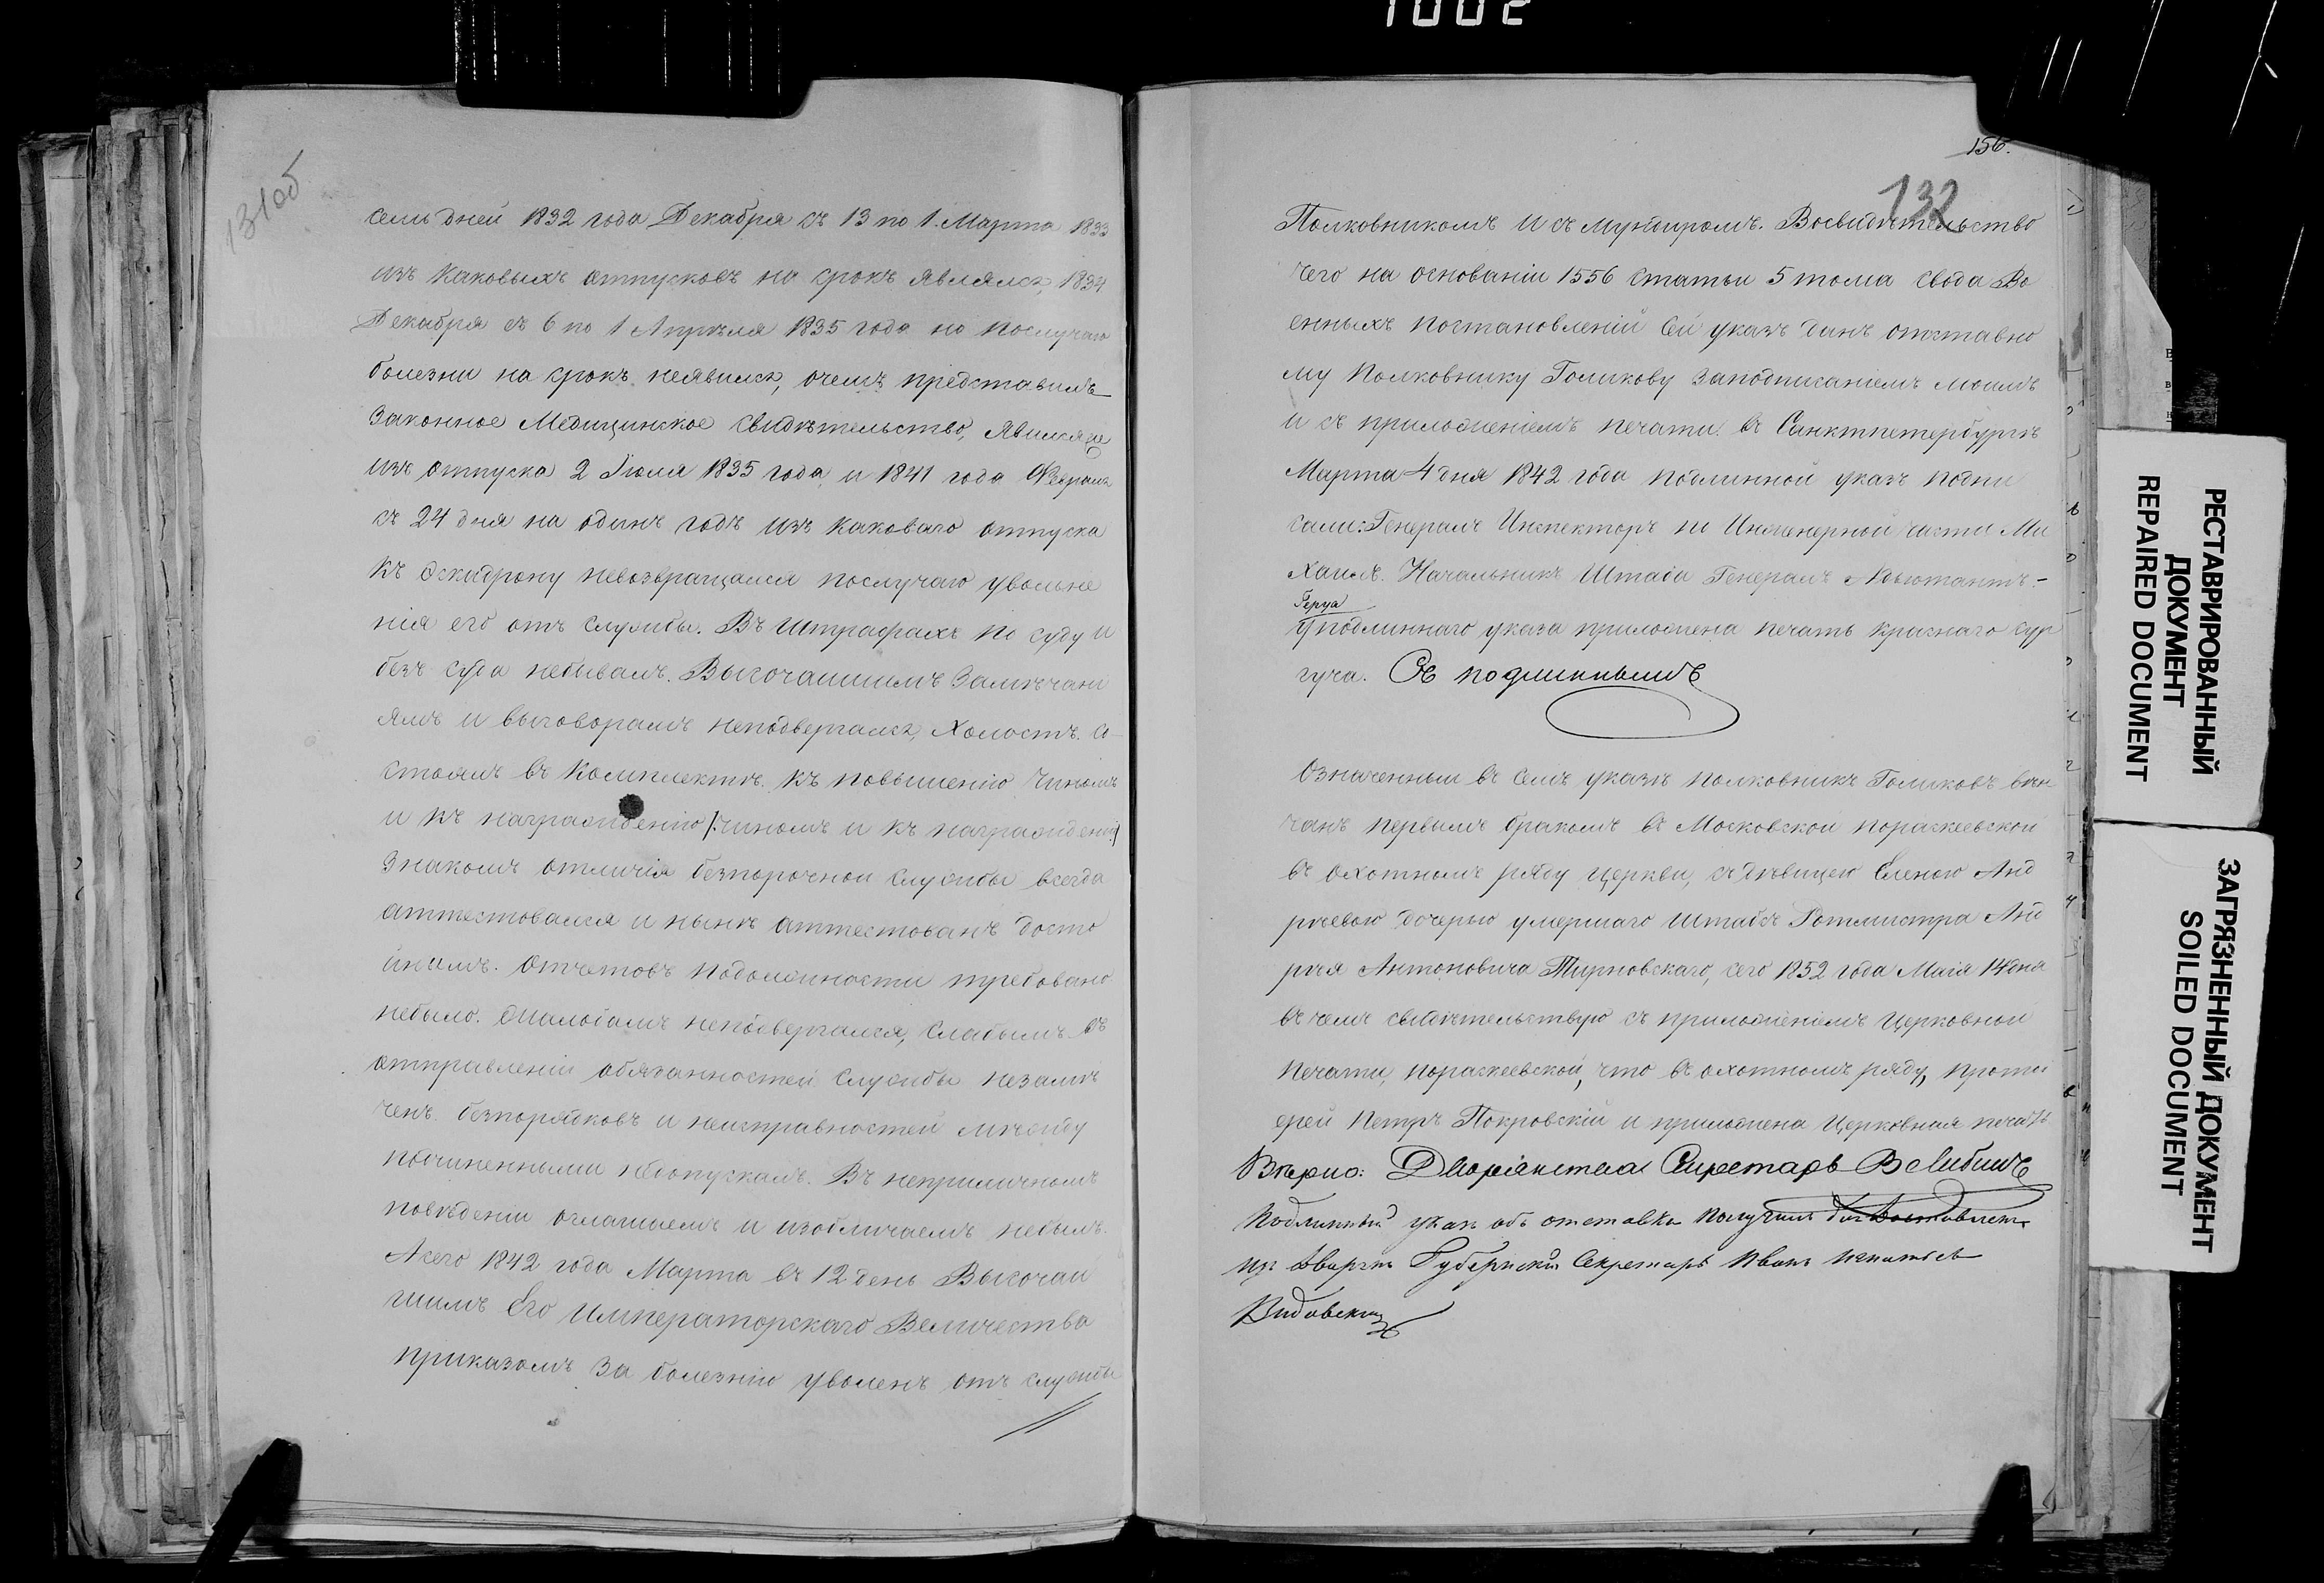 1002
131об
семь дней 1832 года Декабря съ 13 по 1. Марта 1833
изъ каковыхъ отпусковъ на срокъ являлся, 1834
Декабря съ 6 по 1 Апреля 1835 года но послучаю
болезни на срокъ неявился, очемъ представилъ
Законное Медицинское свидѣтельство, явился же
изъ отпуска 2 Іюля 1835 года и 1841 года Февраля
съ 24 дня на одинъ годъ изъ каковаго отпуска
къ эскадрону невозвращался послучаю увольне
нія его отъ службы. Въ штрафахъ по суду и
безъ суда небывалъ. Высочайшимъ Замѣчані
ямъ и выговорамъ неподвергался, Холостъ. Со
стоялъ въ Комплектѣ. къ повышенію чиномъ
и къ награжденію /:чиномъ и къ награжденію:/
Знакомъ отличія безпорочной Службы всегда
аттестовался и нынѣ аттестованъ досто
йнымъ. Отчетовъ подолжности требовано
небыло. Жалобамъ неподвергался, Слабымъ въ
отправленіи обязанностей Службы незамѣ
ченъ. безпорядковъ и неисправностей между
подчиненными недопускалъ. Въ неприличномъ
поведеніи оглашаемъ и изобличаемъ небылъ.
А сего 1842 года Марта въ 12 день Высочай
шимъ Его Императорскаго Величества
приказомъ за болезнію уволенъ отъ службы
156.
132
Полковникомъ и съ мундиромъ. Восвидѣтельство
чего на основаніи 1556 статьи 5 тома свода Во
енныхъ постановленій Сей указъ данъ отставно
му Полковнику Голикову заподписаніемъ моимъ
и съ приложеніемъ печати. въ Санктпетербургѣ
Марта 4 дня 1842 года подлинной указъ подпи
сали: Генералъ Инспекторъ по Инженерной части Ми
хаилъ. Начальникъ Штаба Генералъ Адъютантъ-
Геруа
Уподлиннаго указа приложена печать краснаго сур
гуча. Съ подлиннымъ
Означенный въ семъ указѣ полковникъ Голиковъ вѣн
чанъ первымъ бракомъ въ Московской пораскеевской
въ охотномъ ряду церкви, съ дѣвицею Еленою Анд
рѣевою дочерью умершаго Штабсъ Ротмистра Анд
рѣя Антоновича Тырновскаго, сего 1852 года Маія 14 дня
въ чемъ свидѣтельствую съ приложеніемъ Церковной
печати, пораскеевской, что въ охотномъ ряду, протоі
ерей Петръ Покровскій и приложена Церковная печать
Вѣрно: Дворянства Секретарь
Подлинный указъ объ отставки получилъ
Губернскій Секретарь Иванъ Игнатьевъ
РЕСТАВРИРОВАННЫЙ
ДОКУМЕНТ
REPAIRED DOCUMENT
ЗАГРЯЗНЕННЫЙ ДОКУМЕНТ
SOILED DOCUMENT